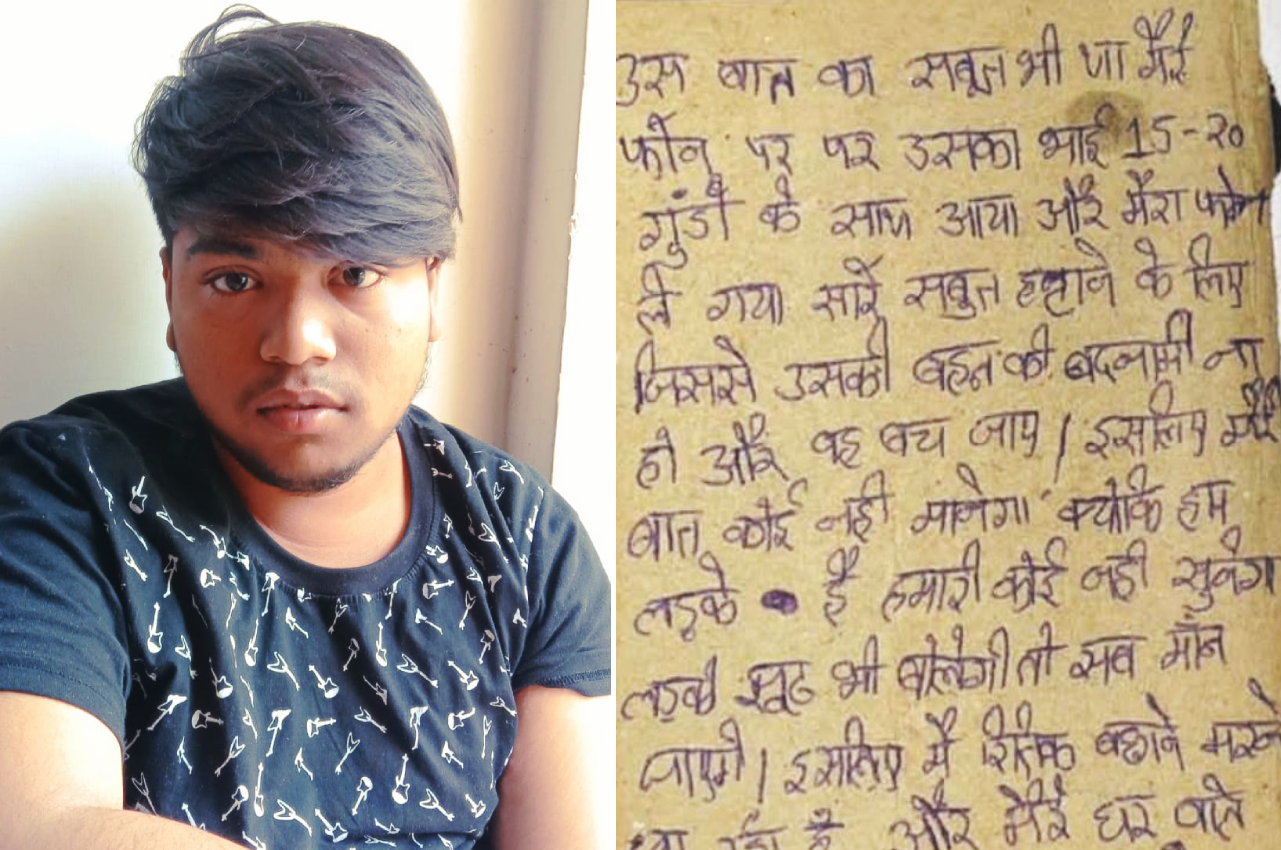 उस बात का सबूत भी था मेरे
फोन पर पर उसका भाई 15-20
गुंडो के साथ आया और मेरा फोन
ले गया सारे सबुत हटाने के लिए
जिससे उसकी बहन की बदनामी ना
हो और वह बच जाए । इसलिए मेरी
बात कोई नही मानेगा क्योकि हम
लड़के है हमारी कोई नही सुनेगा
लड़की झूठ भी बोलेगी तो सब मान
जाएगे । इसलिए मै रितिक मरने
जा रहा हूँ और मेरे घर वाले